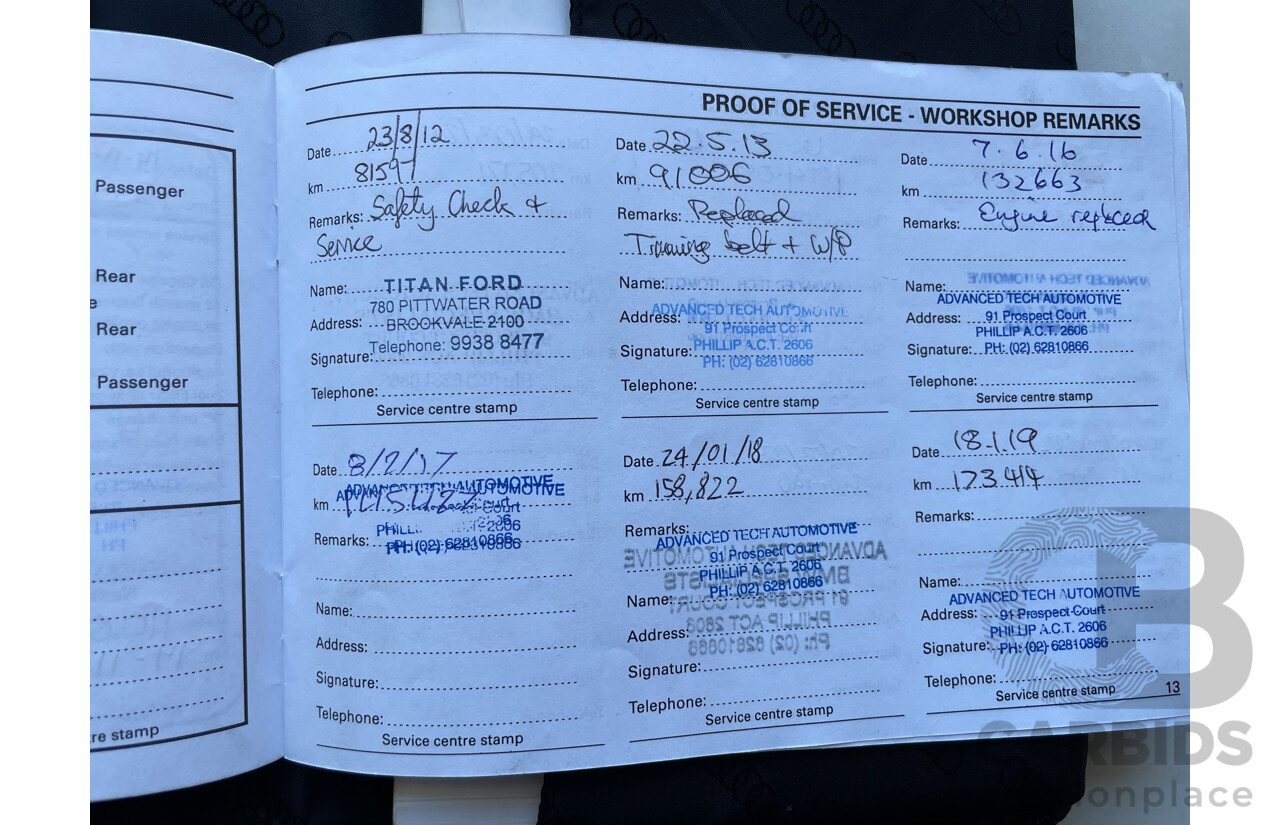 PROOF OF SERVICE - WORKSHOP REMARKS
Passenger
Rear
e
Rear
Passenger
re stamp
Date 23/8/12
km 81597
Remarks: Safety Check +
Service
Name: TITAN FORD
780 PITTWATER ROAD
Address: BROOKVALE 2100
Telephone: 9938 8477
Signature:
Telephone:
Service centre stamp
Date 22.5.13
km 91006
Remarks: Replaced
Timing belt + W/P
Name:
ADVANCED TECH AUTOMOTIVE
Address: 91 Prospect Court
PHILLIP A.C.T. 2606
Signature: PH: (02) 62810866
Telephone:
Service centre stamp
Date 7.6.16
km 132663
Remarks: Engine replaced
Name:
ADVANCED TECH AUTOMOTIVE
Address: 91 Prospect Court
PHILLIP A.C.T. 2606
Signature: PH: (02) 62810866
Telephone:
Service centre stamp
Date 8/2/17
ADVANCED TECH AUTOMOTIVE
km
Court
PHILL 2606
Remarks: PH: (02) 62810866
Name:
Address:
Signature:
Telephone:
Service centre stamp
Date 24/01/18
km 158,822
Remarks:
ADVANCED TECH AUTOMOTIVE
91 Prospect Court
PHILLIP A.C.T. 2606
PH: (02) 62810866
Name:
Address:
Signature:
Telephone:
Service centre stamp
Date 18.1.19
km 173414
Remarks:
Name:
ADVANCED TECH AUTOMOTIVE
Address: 91 Prospect Court
PHILLIP A.C.T. 2606
Signature: PH: (02) 62810866
Telephone:
Service centre stamp
13
CARBIDS
onplace